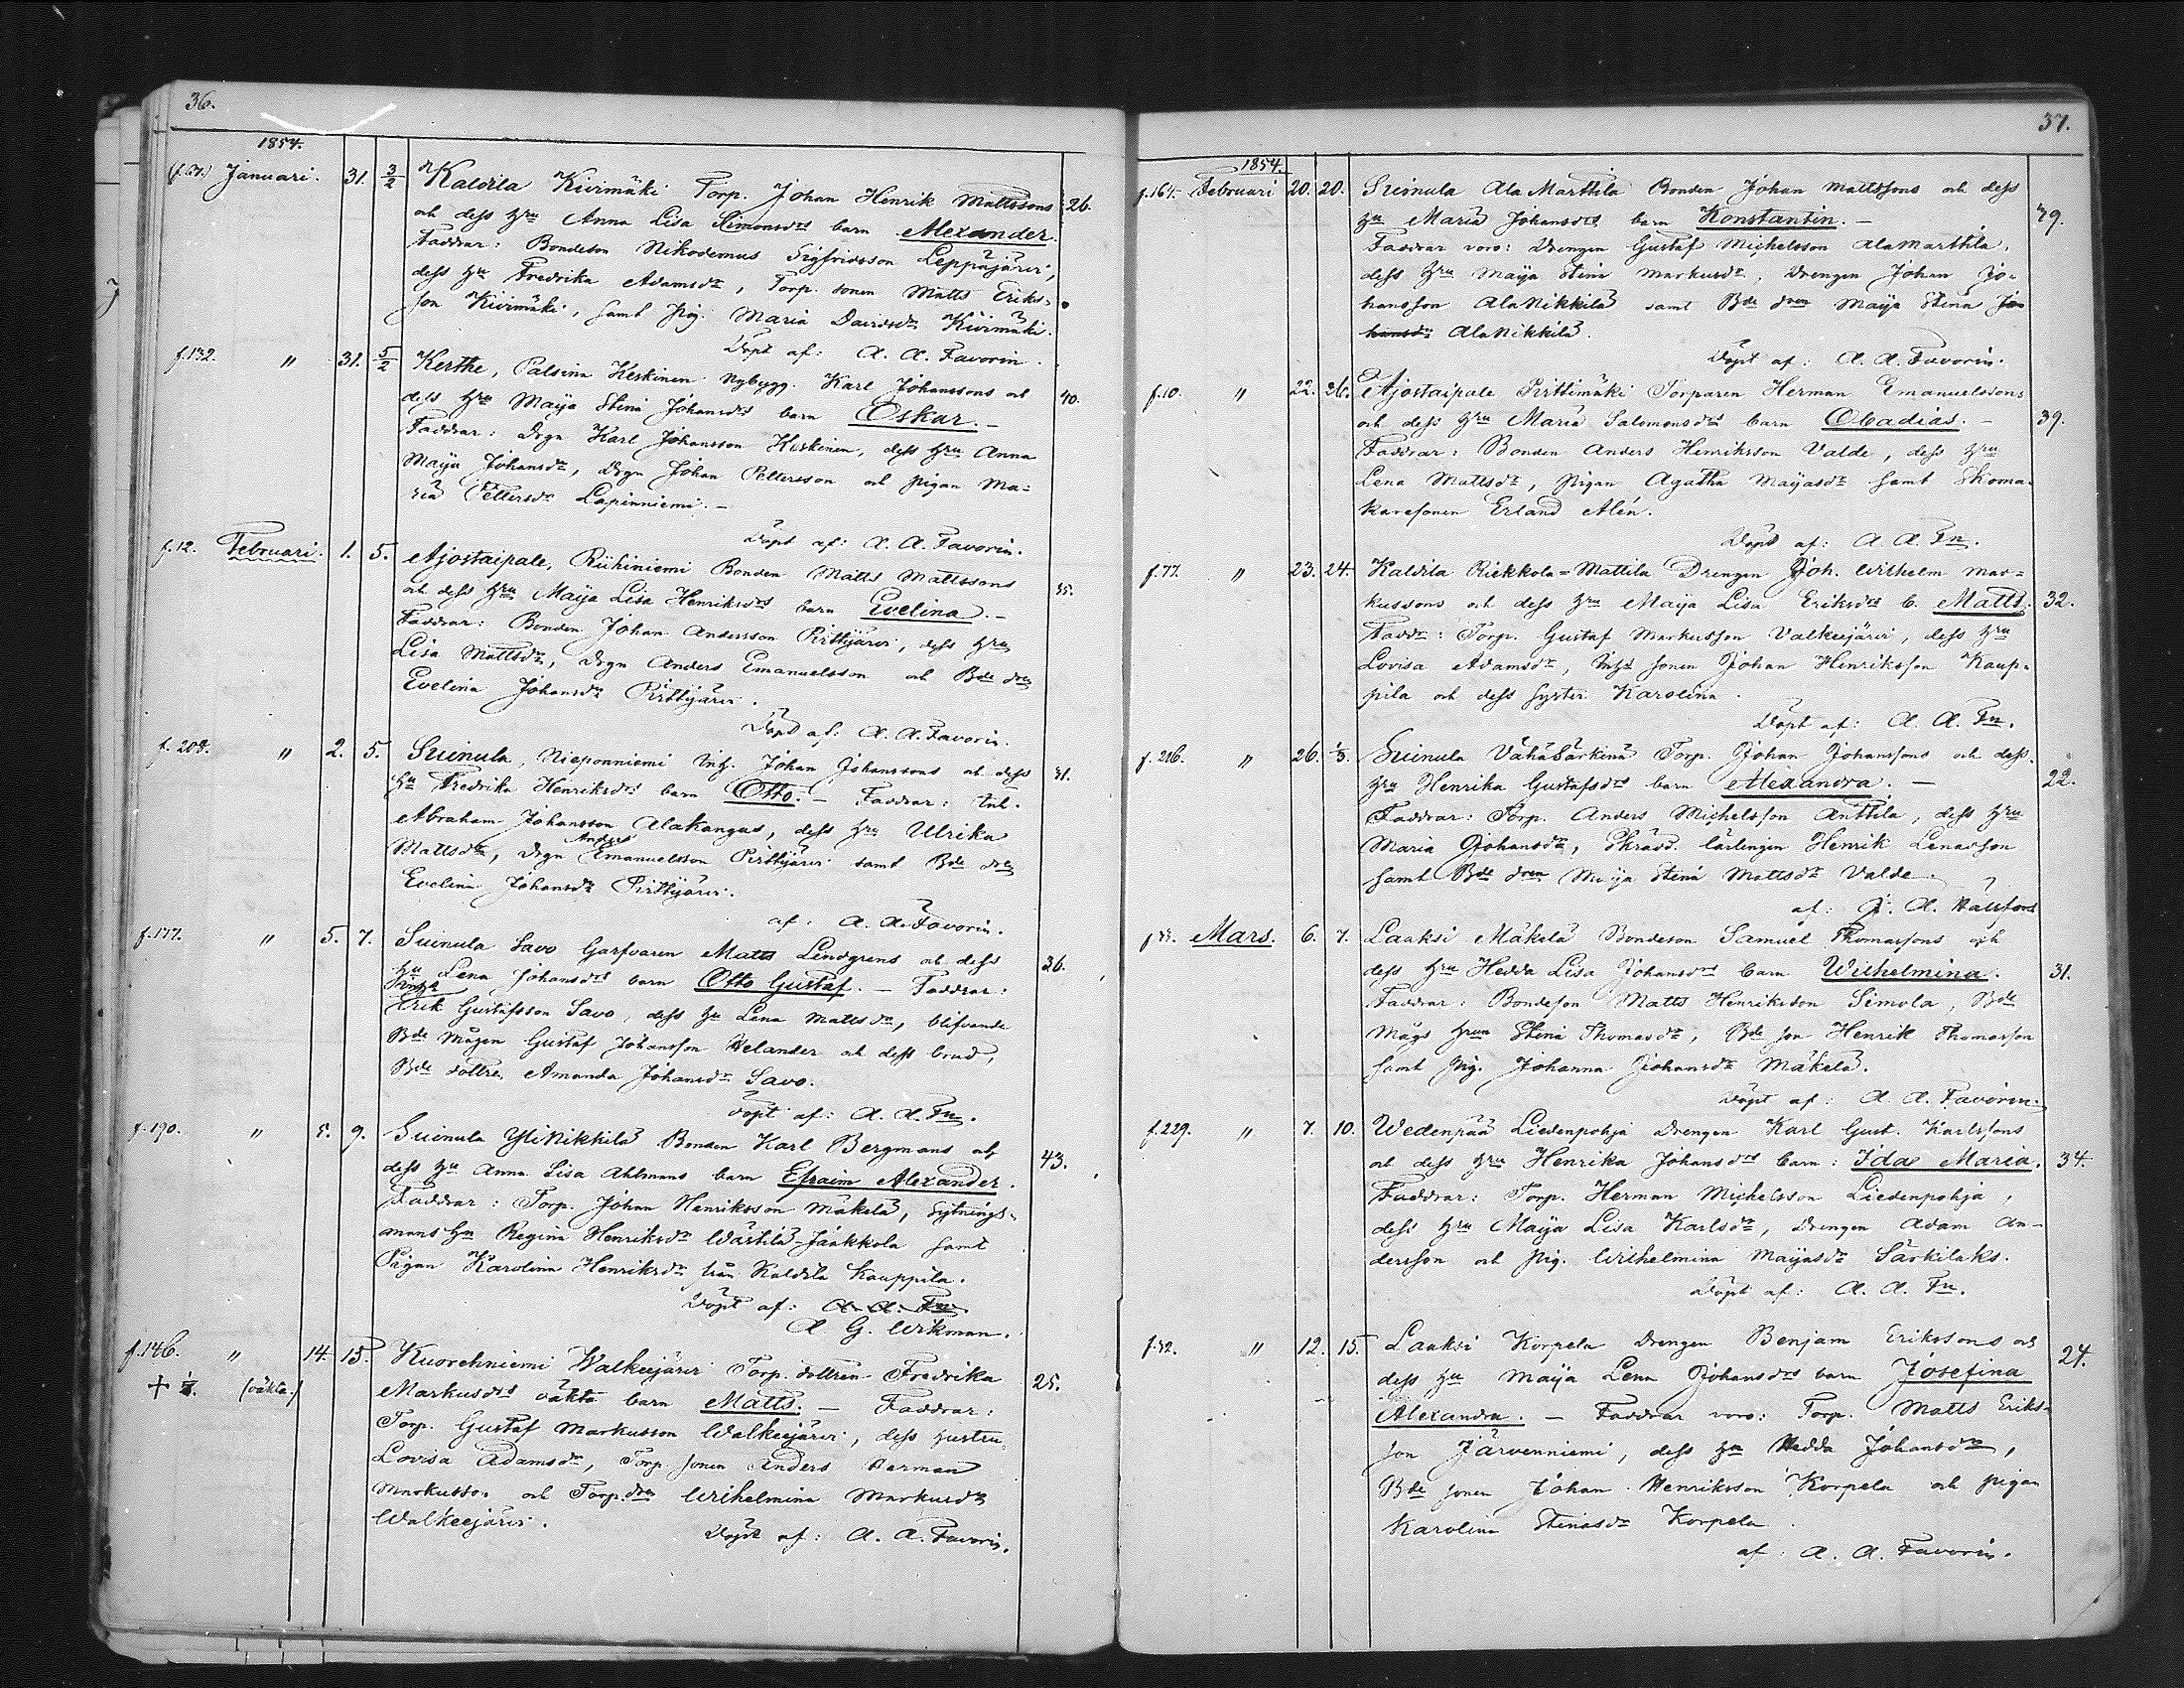 36.
1854.
(f.67.) Januari. 31. 3/2 Kaldila Kivimäki Torp. Johan Henrik Mattssons 26.
och dess Hru Anna Lisa Simonsdrs barn Alexander.
Faddrar: Bondeson Nikodemus Sigfridsson Leppäjärvi,
dess Hu Fredrika Adamsdr, Torp. sonen Matts Eriks-
son Kivimäki, samt Pig. Maria Davidsdr Kivimäki.
Döpt af: A. A. Favorin.
f.132. " 31. 5/2 Kerthe, Palsina Keskinen Nybygg. Karl Johanssons och
dess Hru Maija Stina Johansdrs barn Oskar. — 40.
Faddrar: Drgn Karl Johansson Keskinen, dess Hru Anna
Maija Johansdr, Drgn Johan Pettersson och pigan Ma-
ria Pettersdr Lapinniemi. —
Döpt af: A. A. Favorin.
f.12. Februari. 1. 5. Ajostaipale, Riihiniemi Bonden Matts Mattssons
och dess Hru Maija Lisa Henriksdrs barn Evelina. — 35.
Faddrar: Bonden Johan Andersson Pirttijärvi, dess Hru
Lisa Mattsdr, Drgn Anders Emanuelsson och Bde drn
Evelina Johansdr Pirttijärvi.
Döpt af: A. A. Favorin.
f. 208. " 2. 5. Suinula, Nieponniemi Inh. Johan Johanssons och dess 31.
Hu Fredrika Henriksdrs barn Otto. — Faddrar: Inh.
Abraham Johansson Alakangas, dess Hru Ulrika
Mattsdr, Drgn Anders Emanuelsson Pirttijärvi samt Bde drn
Evelina Johansdr Pirttijärvi.
af: A. A. Favorin.
f.177. " 5. 7. Suinula Savo Garfvaren Matts Lindgrens och dess 36.
Hu Lena Johansdrs barn Otto Gustaf. — Faddrar:
Erik Gustafsson Savo, dess Hu Lena Mattsdr, blifvande
Bde Mågen Gustaf Johansson Velander och dess brud,
Bde dottren Amanda Johansdr Savo.
Döpt af: A. A. Fn.
f.190. " 5. 9. Suinula YliNikkilä Bonden Karl Bergmans och 43.
dess Hu Anna Lisa Ahlmans barn Efraim Alexander.
Faddrar: Torp. Johan Henriksson Mäkelä, Sytnings-
mans Hu Regina Henriksdr Wärtilä-Jaakkola samt
Pigan Karolina Henriksdr från Kaldila Kauppila.
Döpt af: A. A. Fn.
A G. Wikman.
f.146. " 14. 15. Kuorehniemi Walkeejärvi Torp. dottren Fredrika 25.
+ (oäkta.) Markusdrs oäkta barn Matts. — Faddrar:
Torp. Gustaf Markusson Walkeejärvi, dess hustru
Lovisa Adamsdr, Torp. sonen Anders Herman
Markusson och Torp. drn Wilhelmina Markusdr
Walkeejärvi.
Döpt af: A. A. Favorin.
37.
1854.
f.164. Februari 20. 20. Suinula Ala Marttila Bonden Johan Mattssons och dess
Hu Maria Johansdrs barn Konstantin. — 39.
Faddrar voro: Drengen Gustaf Michelsson AlaMarttila,
dess Hru Maija Stina Markusdr, Drengen Johan Jo-
hansson AlaNikkilä samt Bde dren Maija Stina Jo-
hansdr AlaNikkilä.
Döpt af: A. A. Favorin.
f.10. " 22. 26. Ajostaipale Pirttimäki Torparen Herman Emanuelssons
och dess Hru Maria Salomonsdrs barn Obadias. — 39.
Faddrar: Bonden Anders Henriksson Valde, dess Hru
Lena Mattsdr, pigan Agatha Maijasdr samt Skoma-
karesonen Erland Alén.
Döpt af: A A. Fn.
f.77. " 23. 24. Kaldila Riekkola=Mattila Drengen Joh. Wilhelm Mar-
kussons och dess Hru Maija Lisa Eriksdrs b. Matts. 32.
Faddr: Torp. Gustaf Markusson Valkeejärvi, dess Hru
Lovisa Adamsdr, Inhs sonen Johan Henriksson Kaup-
pila och dess syster Karolina.
Döpt af: A. A. Fn.
f.216. " 26. 1/3. Suinula VähäSärkinä Torp. Johan Johanssons och dess
Hru Henrika Gustafsdrs barn Alexandra. — 22.
Faddrar: Torp. Anders Michelsson Anttila, dess Hru
Maria Johansdr, Skrädd. lärlingen Henrik Lenasson
samt Bde dren Maija Stina Mattsdr Valde.
af: A. Hällfors
Mars. 6. 7. Laaksi Mäkelä Bondeson Samuel Thomassons och
dess Hru Hedda Lisa Johansdrs barn Wilhelmina. 31.
Faddrar: Bondeson Matts Henriksson Simola, Bde
Mågs Hrun Stina Thomasdr, Bde son Henrik Thomasson
samt pig. Johanna Johansdr Mäkelä.
Döpt af: A. A. Favorin.
f.229. " 7. 10. Wedenpää Liedenpohja Drengen Karl Gust. Karlssons
och dess Hru Henrika Johansdrs barn: Ida Maria. 34.
Faddrar: Torp. Herman Michelsson Liedenpohja,
dess Hru Maija Lisa Karlsdr, Drengen Adam An-
dersson och pig. Wilhelmina Maijasdr Särkilaks.
Döpt af: A. A. Fn.
f.52. " 12. 15. Laaksi Korpela Drengen Benjam Erikssons och
dess Hu Maija Lena Johansdrs barn Josefina 24.
Alexandra. — Faddrar voro: Torp. Matts Eriks-
son Järvenniemi, dess Hu Hedda Johansdr,
Bde sonen Johan Henriksson Korpela och pigan
Karolina Stinasdr Korpela.
af: A. A. Favorin.